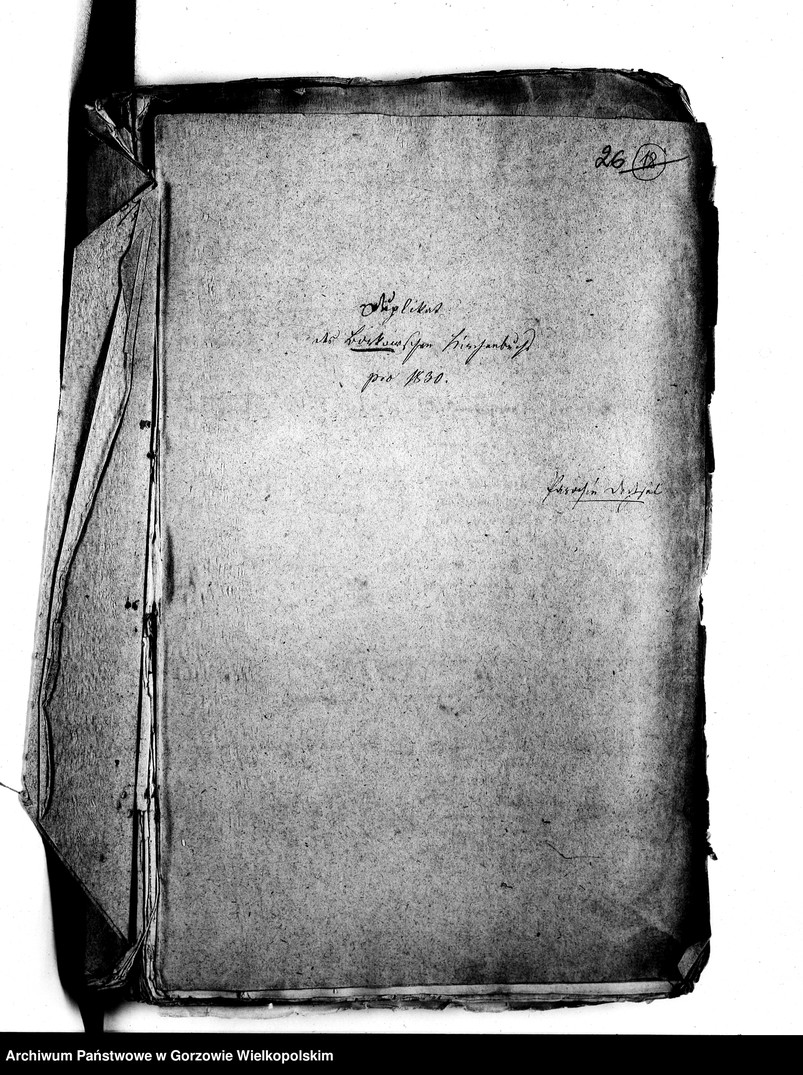 26 18
Duplikat
des Borkowschen Kirchenbuchs
pro 1830.
Parochie
Archiwum Państwowe w Gorzowie Wielkopolskim